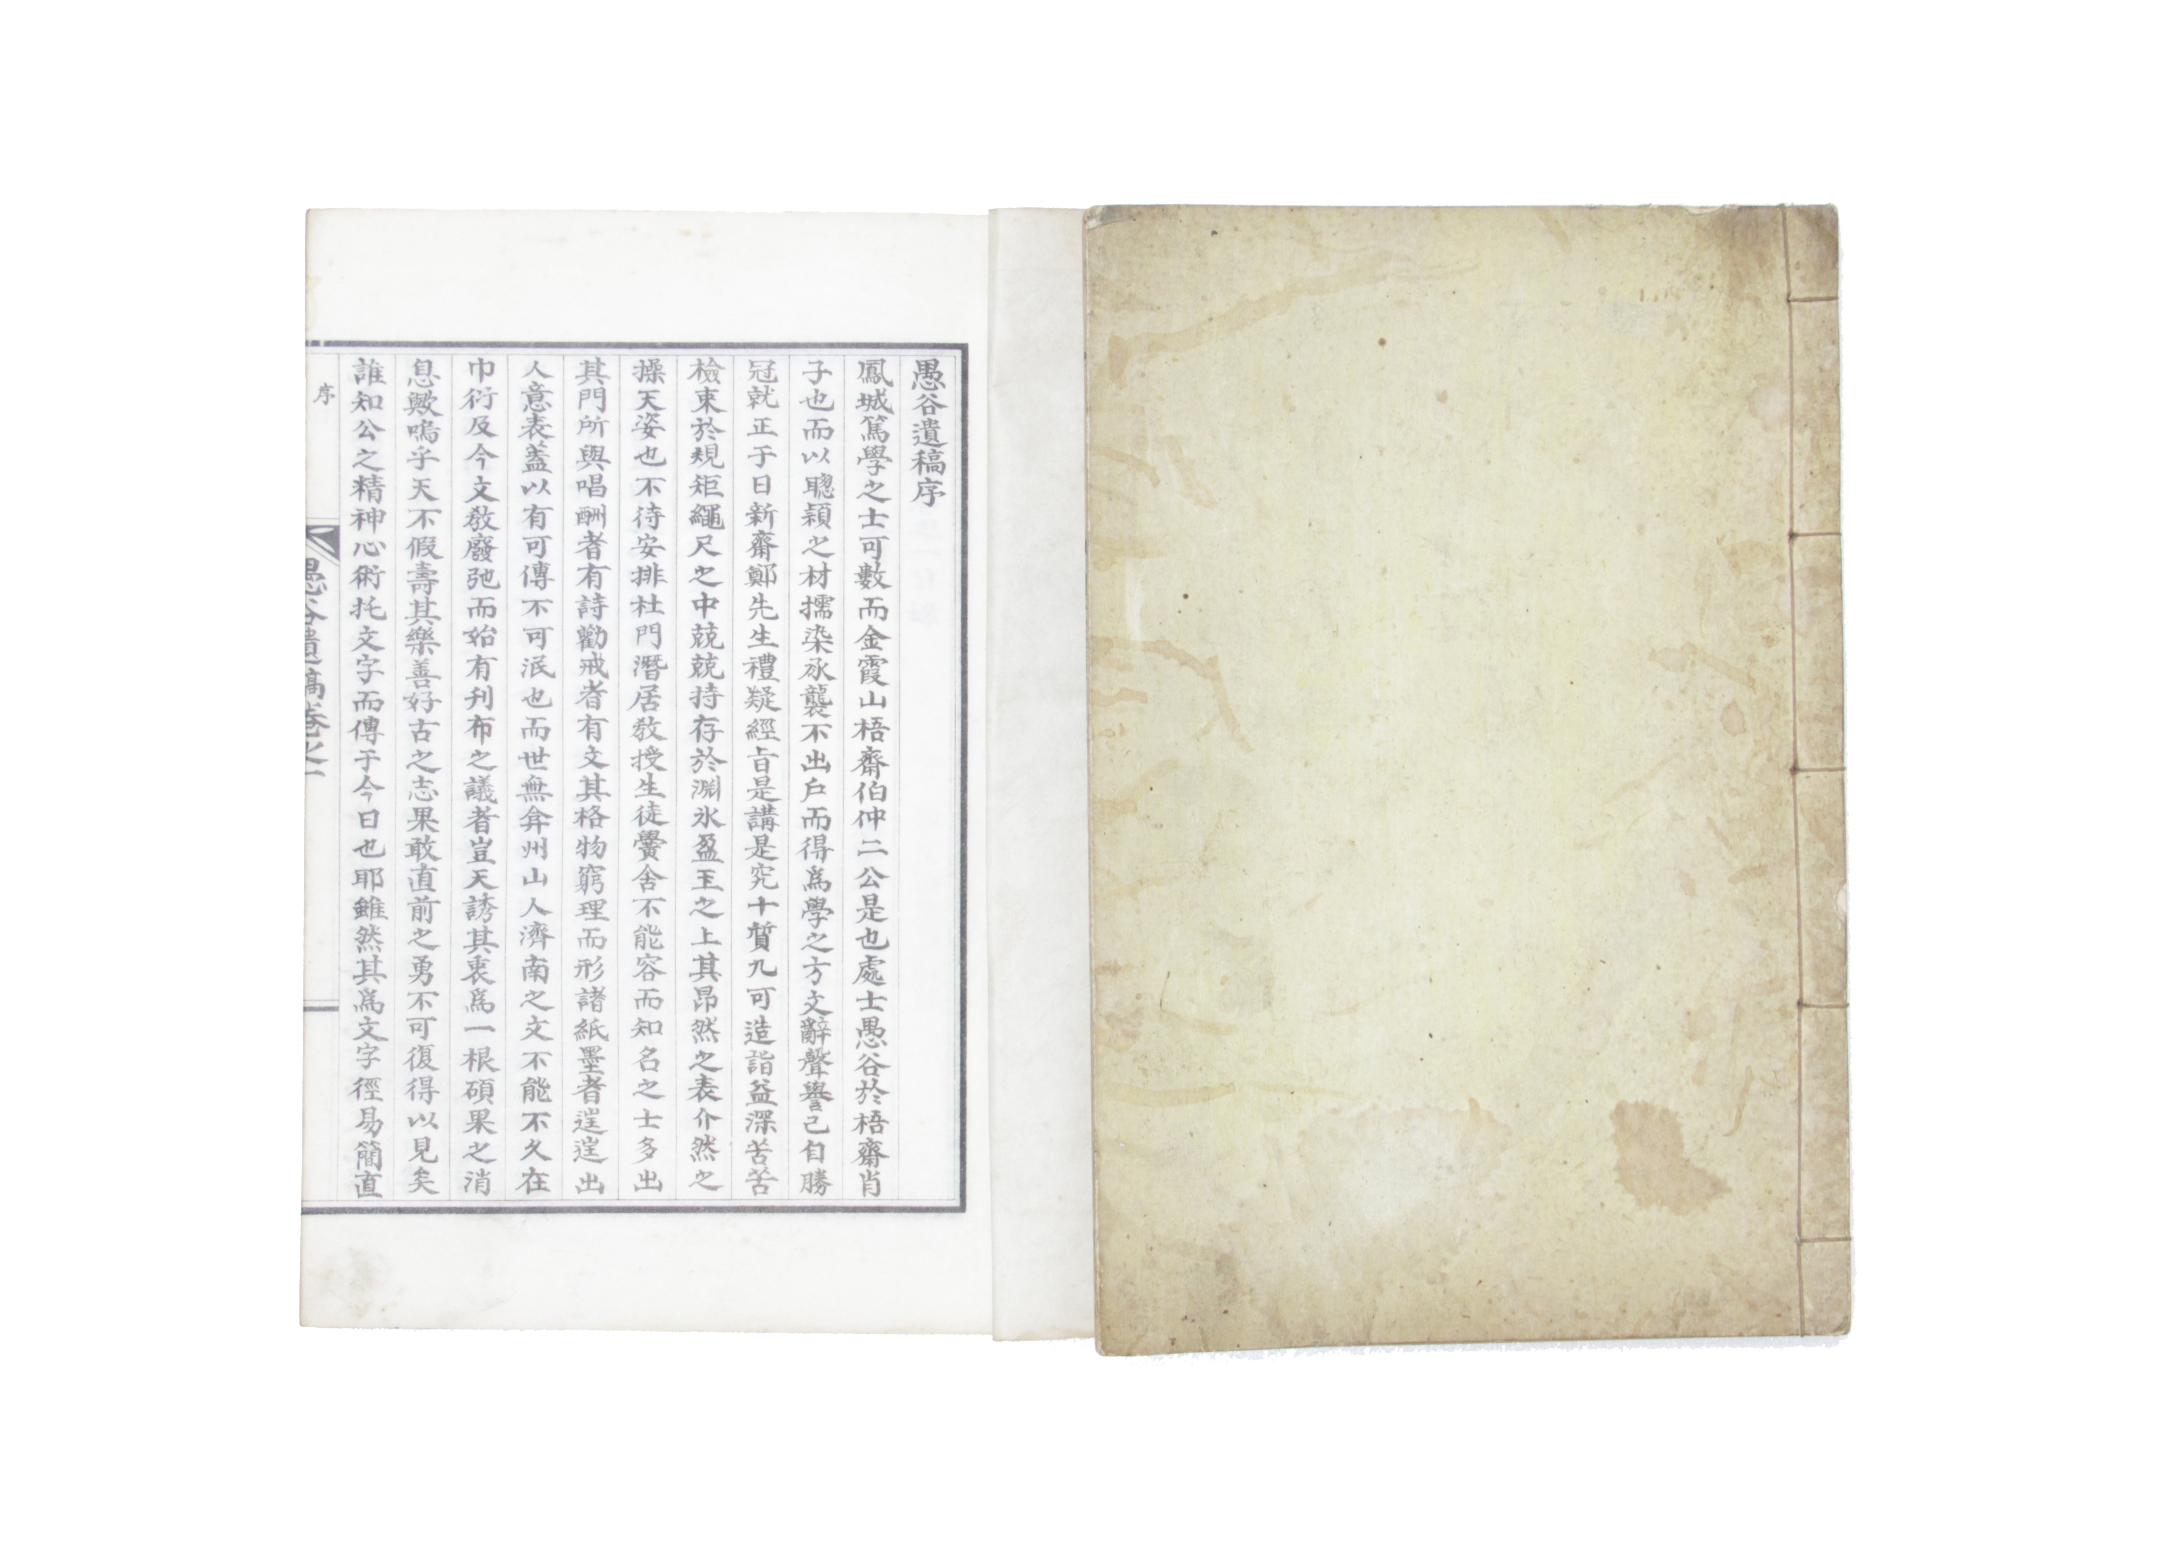 愚谷遺稿序
鳳城篤學之士可數而金霞山梧齋伯仲二公是也處士愚谷於梧齋肖
子也而以聰穎之材擩染承襲不出戶而得爲學之方文辭聲譽己自勝
冠就正于日新齋鄭先生禮疑經旨是講是究十質九可造詣益深苦苦
檢束於規矩繩尺之中兢兢持存於淵氷盈玉之上其昂然之表介然之
操天姿也不待安排杜門潛居敎授生徒黌舍不能容而知名之士多出
其門所與唱酬者有詩勸戒者有文其格物窮理而形諸紙墨者逞逞出
人意表蓋以有可傳不可泯也而世無弇州山人濟南之文不能不久在
巾衍及今文敎廢弛而始有刋布之議者豈天誘其衷爲一根碩果之消
息歟嗚乎天不假壽其樂善好古之志果敢直前之勇不可復得以見矣
誰知公之精神心術托文字而傳于今日也耶雖然其爲文字徑易簡直
序
愚谷遺稿卷之一